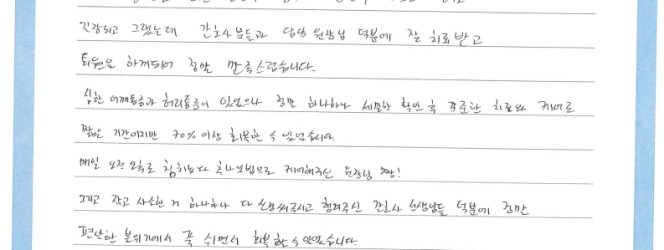 긴장되고 그랬는데 간호사분들과 담당 원장님 덕분에 잘 치료받고
퇴원을 하게되어 정말 만족스럽습니다.
심한 어깨통증과 허리통증이 있었으나 정말 하나하나 세밀한 확인 후 꾸준한 치료와 케어로
짧은 기간이지만 70% 이상 회복할 수 있었습니다.
매일 오전 오후로 침치료와 추나요법으로 케어해주신 원장님 짱!
그리고 작고 사소한 거 하나하나 다 신경써주시고 챙겨주신 간호사 선생님들 덕분에 정말
편안한 분위기에서 푹 쉬면서 회복할 수 있었습니다.